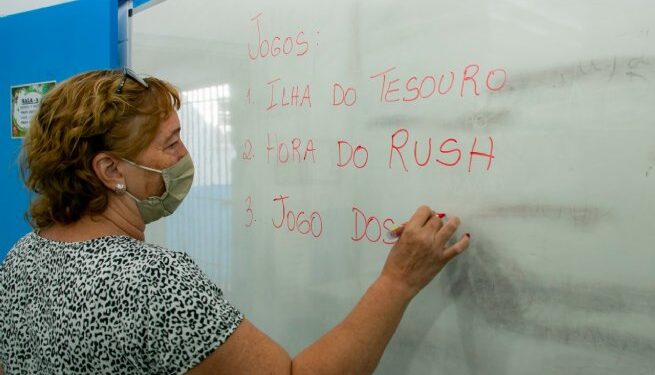 JOGOS:
1. ILHA DO TESOURO
2. HORA DO RUSH
3. JOGO DOS